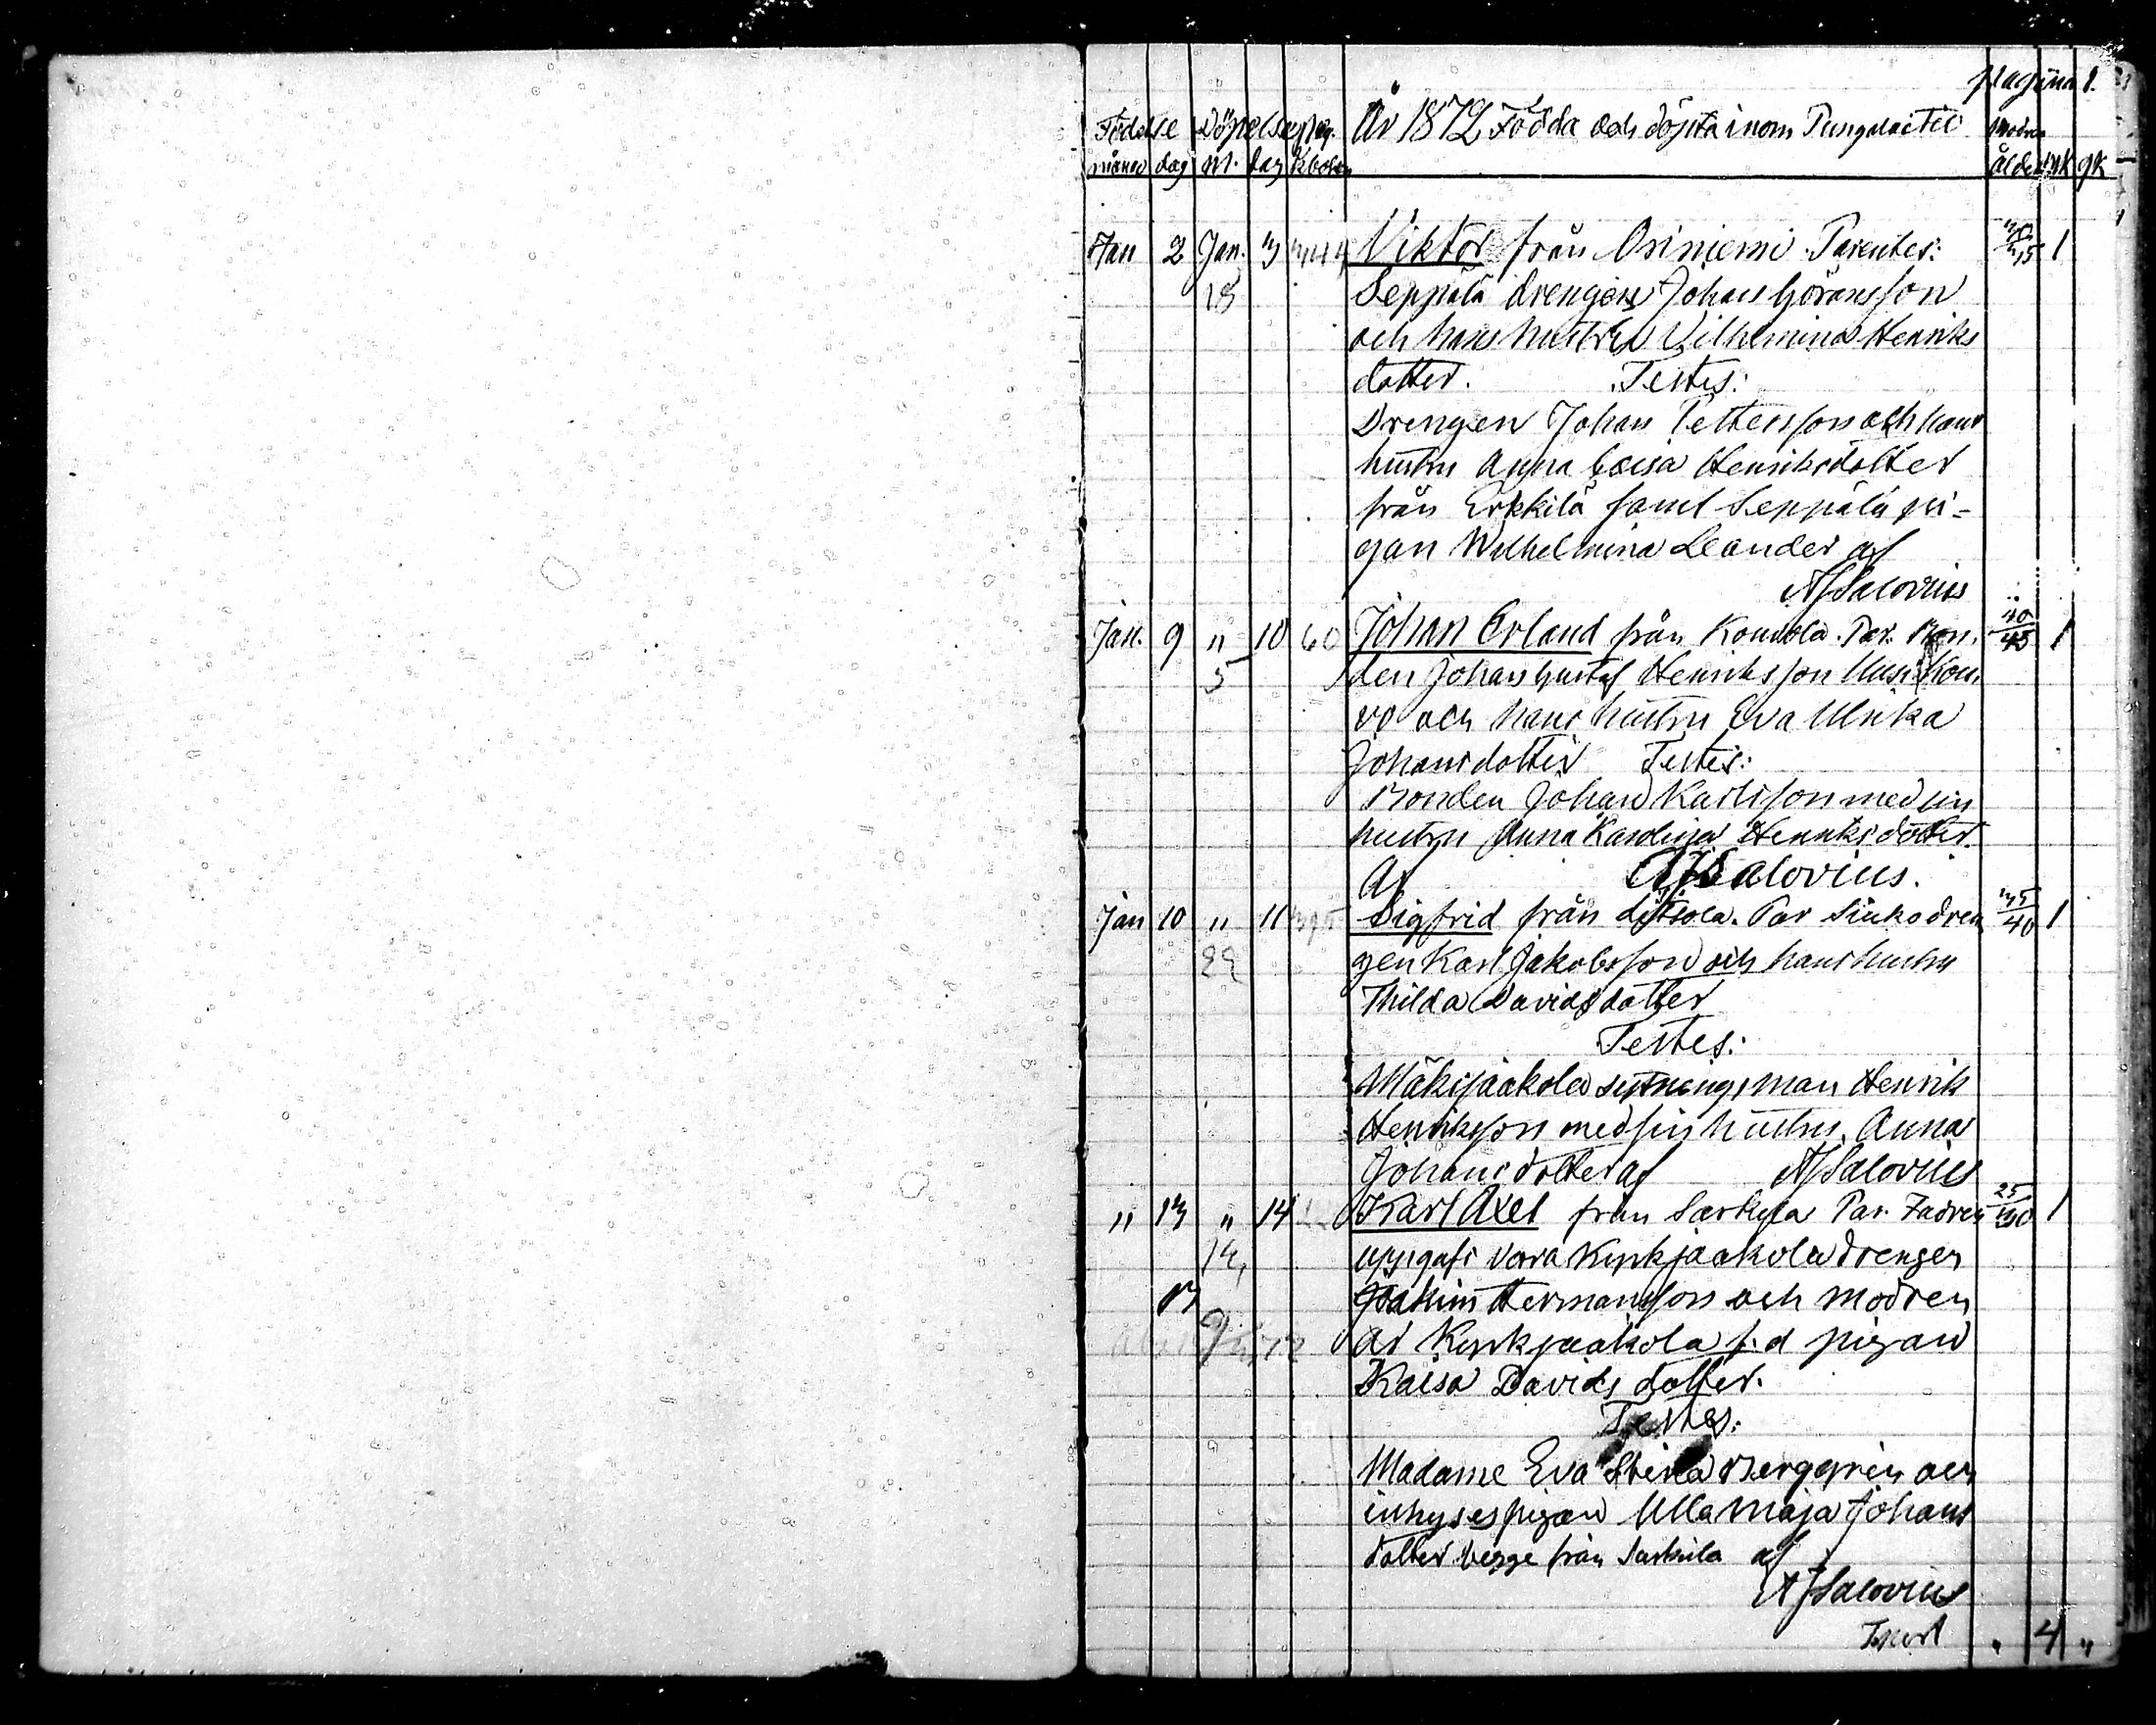 pagina 1.
Födelse Döpelse pag. År 1872 Födda och döpta inom Pungalaitio modrens
månad dag M. dag Kboken ålder mk qk
Jan 2 Jan. 3 344 Viktor från Osiniemi Parentes: 30/35 1
18 Seppälä drengen Johan Göransson
och hans hustru Vilhelmina Henriks
dotter. Testes:
Drengen Johan Pettersson och hans
hustru Anna Caisa Henriksdotter
från Erkkilä samt Seppälä pi-
gan Wilhelmina Leander af
AJSalovius
Jan. 9 " 10 60 Johan Erland från Kouvola. Par. Bon- 40/45 1
5 den Johan Gustaf Henriksson Uusi Kou-
vo och hans hustru Eva Ulrika
Johansdotter Testes:
Bonden Johan Karlsson med sin
hustru Anna Karolina Henriksdotter.
Af AJSalovius.
Jan 10 " 11 Sigfrid från Par dren 35/40 1
22 gen Karl Jakobsson och hans hustru
Thilda Davidsdotter
Testes:
Mäkijaakola sytningsman Henrik
Henriksson med sin hustru Anna
Johansdotter af AJSalovius
" 13 " 14 Karl Axel från Sarkila Par. Fadren 25/30 1
14, uppgafs vara drengen
13 Joakim Hermansson och modren
9 72 är f.d pigan
Kaisa Davidsdotter.
Testes:
Madame Eva Stina Berggren och
inhysespigan Ulla Maja Johans
dotter begge från Sarkila af
AJSalovius
Tnsrt " 4 "